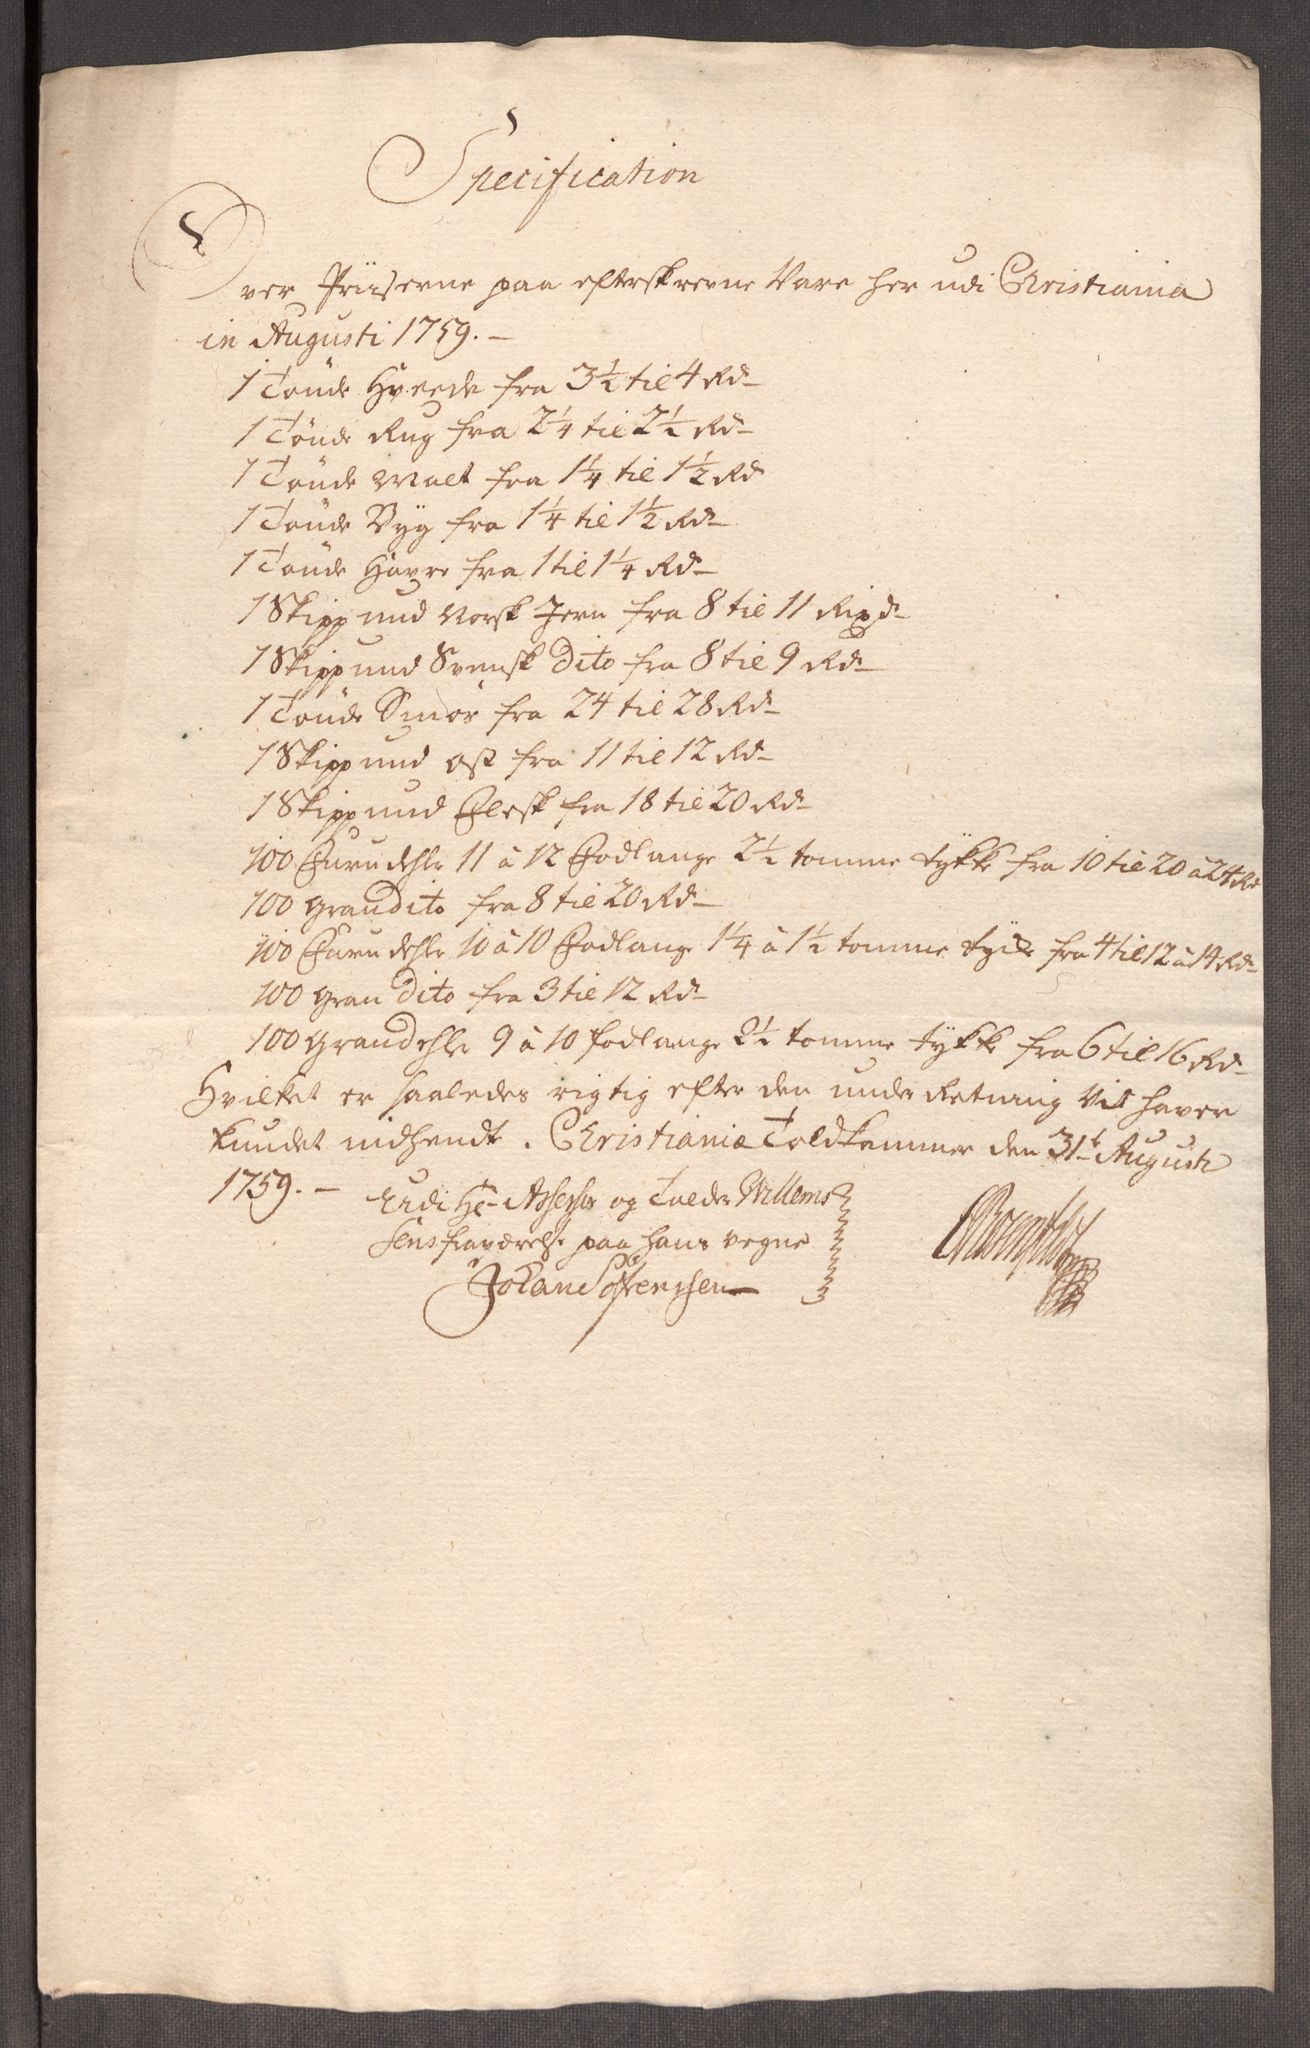 Specification
Over Priiserne paa efterskrevne Vare her udi Christiania
in Augusti 1759.–
1 Tönde Hveede fra 3½ til 4 Rd
1 Tönde Rug fra 2¼ til 2½ Rd
1 Tönde Malt fra 1¼ til 1½ Rd
1 Tönde Byg fra 1¼ til 1½ Rd
1 Tönde Havre fra 1 til 1¼ Rd
1 Skippund Norsk Jern fra 8 til 11 Rixd
1 Skippund Svensk Dito fra 8 til 9 Rd
1 Tönde Smör fra 24 til 28 Rd
1 Skippund Ost fra 11 til 12 Rd
1 Skippund Flesk fra 18 til 20 Rd
100 Furu dehle 11 à 12 Fod lange 2½ tomme tykke fra 10 til 20 à 24 Rd
100 Gran dito fra 8 til 20 Rd
100 Furu dehle 10 à 10 Fod lange 1¼ à 1½ tomme tyke fra 4 til 12 à 14 Rd
100 Gran Dito fra 3 til 12 Rd
100 Gran dehle 9 à 10 fod lange 2½ tomme tykke fra 6 til 16 Rd
Hvilket er saaledes rigtig efter den underRetning Vii haver
kundet indhendte. Christianiæ Toldkammer den 31te Augusti
1759.– Udi Hr Assessor og Tolder Willems
sens fraværelse paa hans vegne
Johan Sörenssen